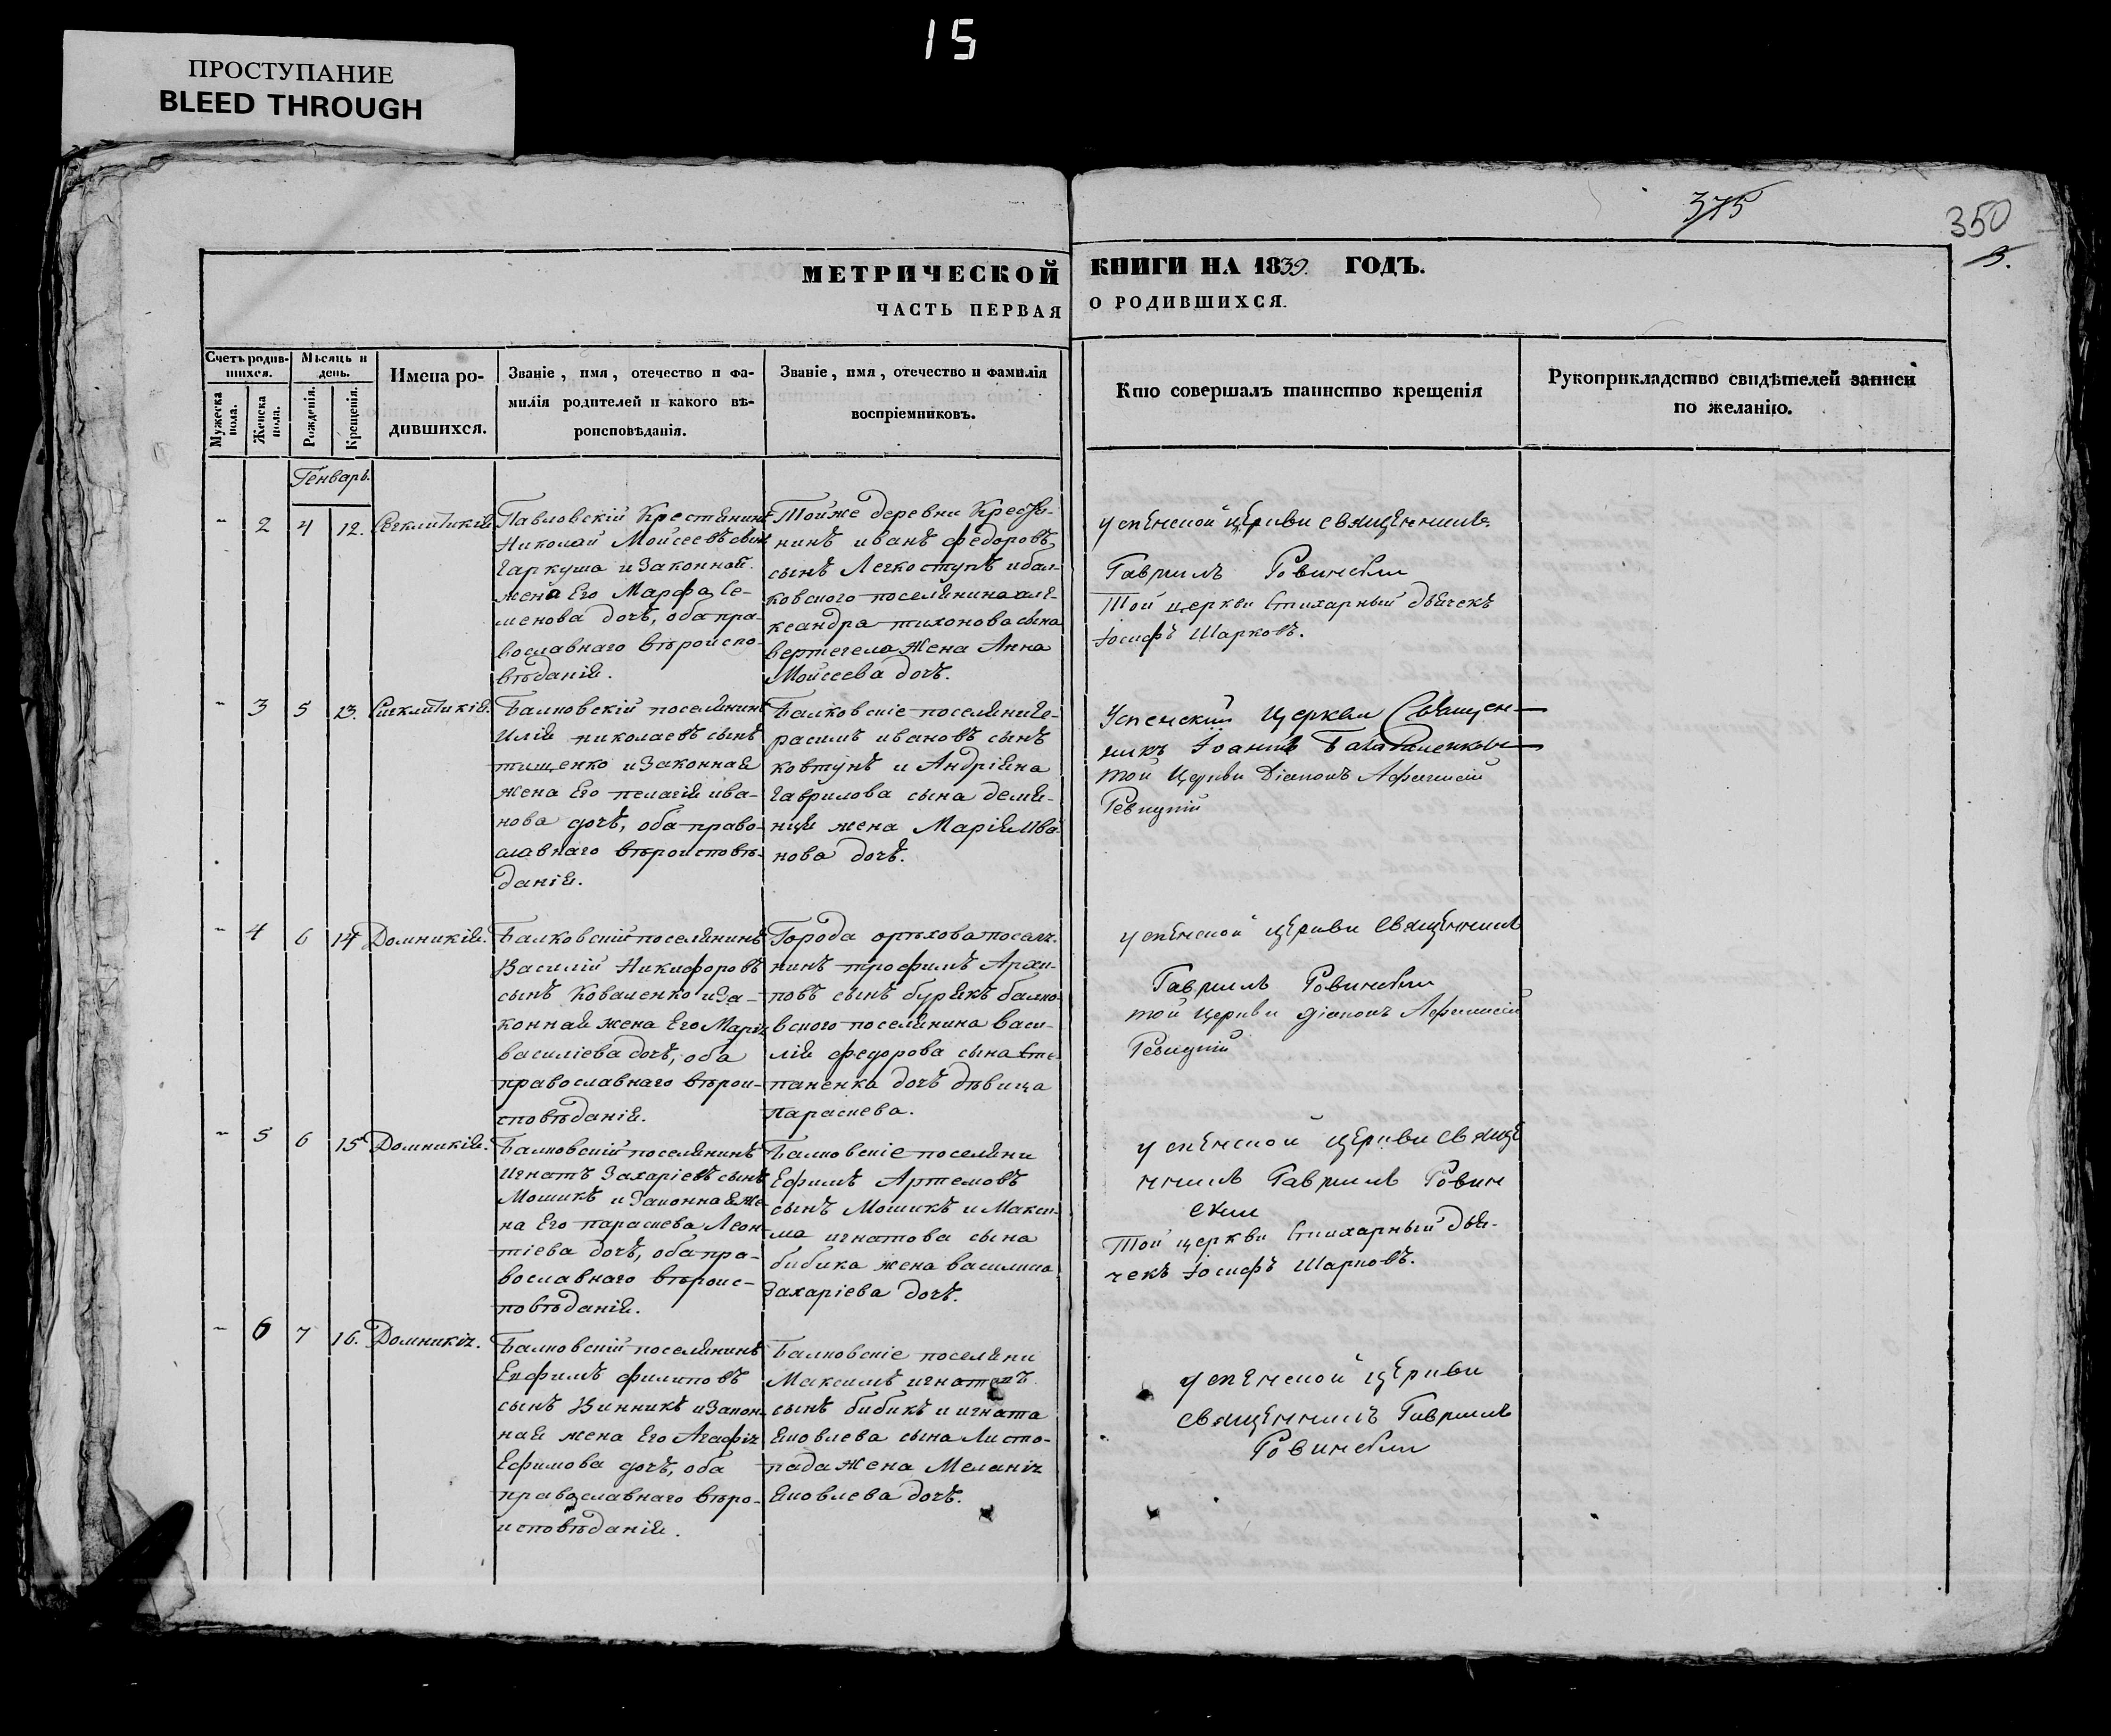 15
ПРОСТУПАНИЕ
BLEED THROUGH
375
350
МЕТРИЧЕСКОЙ КНИГИ НА 1839. ГОДЪ.
ЧАСТЬ ПЕРВАЯ О РОДИВШИХСЯ.
Счетъ родив-
шихся.
Мужеска
пола.
Женска
пола.
Мѣсяць и
день.
Рожденія.
Крещенія.
Имена ро-
дившихся.
Званіе, имя, отечество и фа-
милія родителей и какого вѣ-
роисповѣданія.
Званіе, имя, отечество и фамилія
воспріемниковъ.
Кто совершалъ таинство крещенія
Рукоприкладство свидѣтелей записи
по желанію.
Генварь.
- 2 4 12.
Павловскій Крестянинъ
Николай Моисеевъ сынъ
Гаркуша и Законной
жена Его Марфа Се-
менова дочь, оба пра-
вославнаго вѣроиспо-
вѣданія.
Тойже деревни Крестя-
нинъ иванъ федоровъ
сынъ Легкоступъ и бал-
ковского поселянина але-
ксандра тихонова сына
вертегела жена Анна
Моисеева дочь.
Успенской церкви священникъ
Гавриилъ Ровинскій
Той церкви Стихарный дьячекъ
Іосифъ Шарковъ.
- 3 5 13.
Балковскій поселянинъ
Илія николаевъ сынъ
тищенко и Законная
жена Его пелагія ива-
нова дочь, оба право-
славнаго вѣроисповѣ-
данія.
Балковскіе поселяни Ге-
расимъ ивановъ сынъ
ковтунъ и Андріяна
Гаврилова сына демя-
нця жена Марія Ива
нова дочь.
Успенский Церкви Священ-
никъ Іоаннъ
той Церкви Діаконъ Афанасій
Ревицкій
- 4 6 14 Домникія.
Балковскій поселянинъ
Василій Никифоровъ
сынъ Коваленко и За-
конная жена Его Марія
василіева дочь, оба
православнаго вѣрои-
сповѣданія.
Города орѣхова поселя-
нинъ трофимъ Архи-
повъ сынъ бурякъ балко-
вского поселянина васи-
лія федорова сына сте-
паненка дочь дѣвица
параскева.
Успенской церкви священникъ
Гавриилъ Ровинскій
той Церкви Діаконъ Афанасій
Ревицкій
- 5 6 15 Домникія.
Балковскій поселянинъ
Игнатъ Захаріевъ сынъ
Мошикъ и Законная же-
на Его параскева Леон-
тіева дочь, оба пра-
вославнаго вѣроис-
повѣданія.
Балковскіе поселяни
Ефимъ Артемовъ
сынъ Мошикъ и Макси-
ма игнатова сына
бибика жена василиса
Захаріева дочь.
Успенской церкви свяще
нникъ Гавриилъ Ровин
скій
Той церкви Стихарный дья-
чекъ Іосифъ Шарковъ.
- 6 7 16. Домникія.
Балковскій поселянинъ
Евфимъ филиповъ
сынъ Винникъ и Закон-
ная жена Его Агафія
Ефимова дочь, оба
православнаго вѣро-
исповѣданія.
Балковскіе поселяни
Максимъ игнатовъ
сынъ бибикъ и игната
Яковлева сына Листо-
пада жена Меланія
Яковлева дочь.
Успенской церкви
священникъ Гавриилъ
Ровинскій